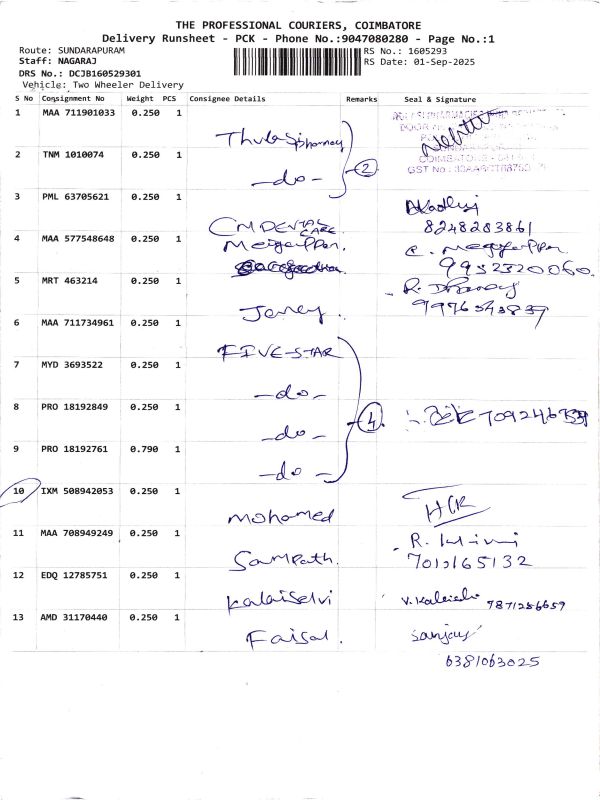 THE PROFESSIONAL COURIERS, COIMBATORE
Delivery Runsheet - PCK - Phone No.:9047080280 - Page No.:1
Route: SUNDARAPURAM
RS No.: 1605293
Staff: NAGARAJ
RS Date: 01-Sep-2025
DRS No.: DCJB160529301
Vehicle: Two Wheeler Delivery
S No Consignment No Weight PCS Consignee Details Remarks Seal & Signature
1 MAA 711901033 0.250 1
2 TNM 1010074 0.250 1
-do- 2
GST No
3 PML 63705621 0.250 1
CM DENTAL CARE
8248283861
4 MAA 577548648 0.250 1
9952320060
5 MRT 463214 0.250 1
Janey
6 MAA 711734961 0.250 1
FIVE-STAR
7 MYD 3693522 0.250 1
-do-
8 PRO 18192849 0.250 1
-do- 4
9 PRO 18192761 0.790 1
-do-
10 IXM 508942053 0.250 1
Mohamed
11 MAA 708949249 0.250 1
Sampath.
12 EDQ 12785751 0.250 1
Kalaiselvi
7871256659
13 AMD 31170440 0.250 1
Faisal. Sanjay
6381063025